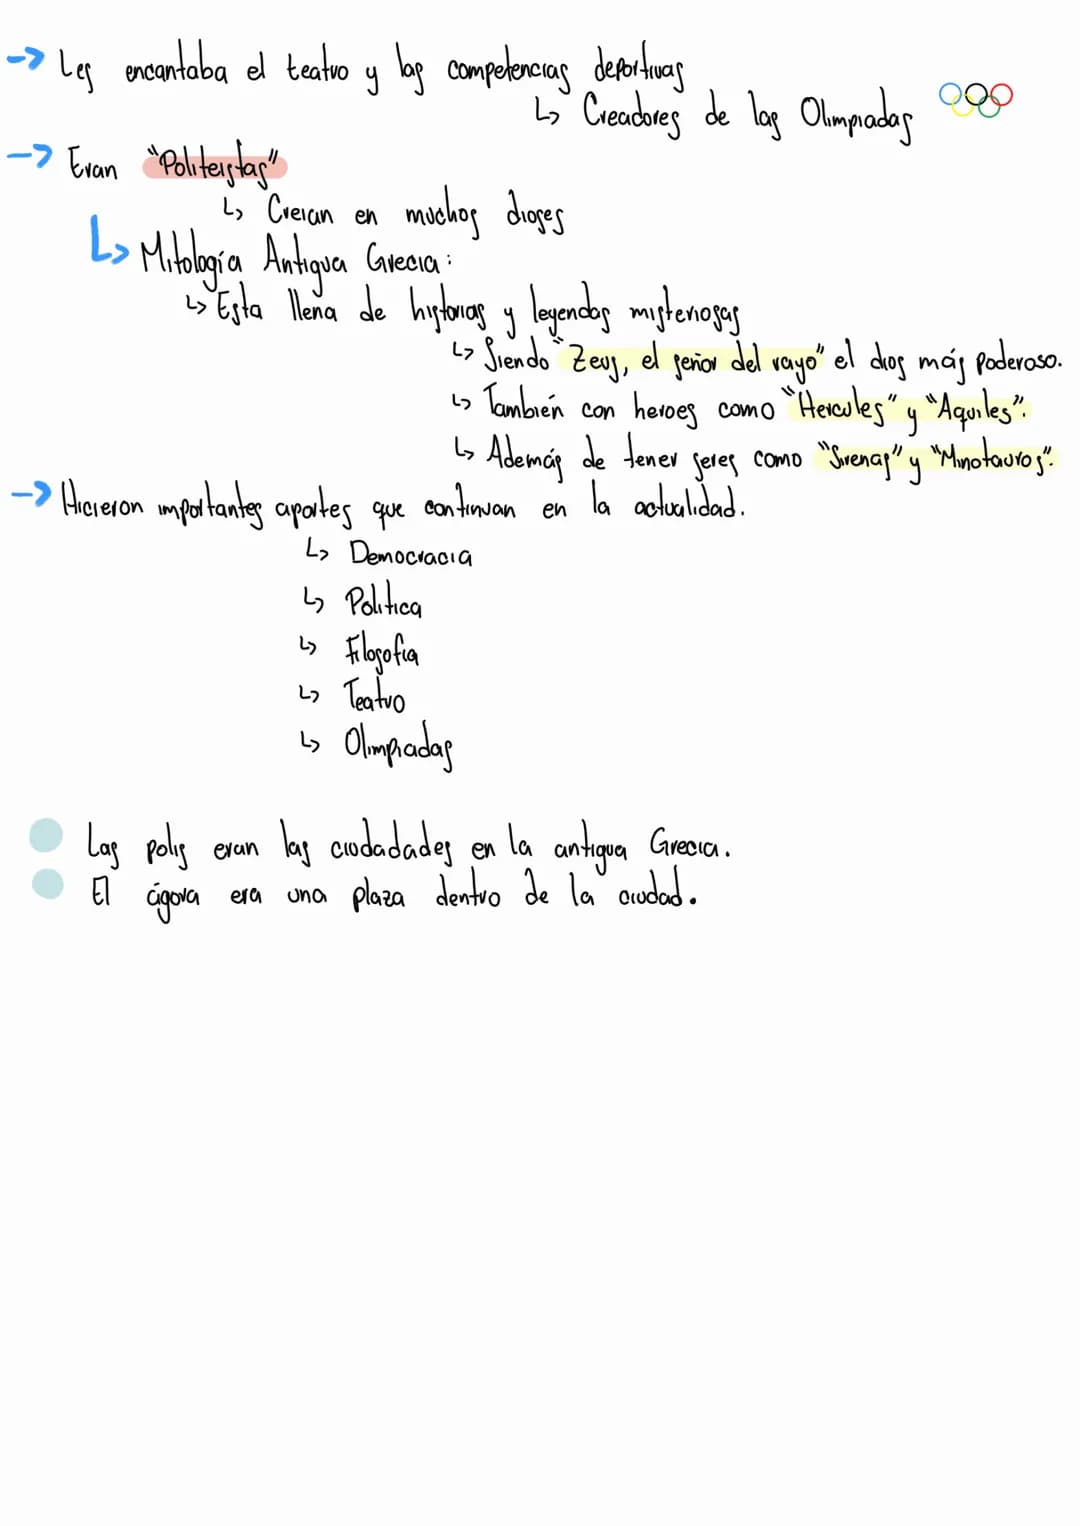 → Les encantaba el teatro y las competencias deportivas
↳ Creadores de las Olimpiadas
→ Eran "Politeistas"
↳ Creian en muchos dioses
↳ Mitología Antigua Grecia:
↳ Esta llena de historias y leyendas misteriosas
↳ Siendo "Zeus, el señor del rayo" el dios más poderoso.
↳ También con heroes como "Hercules" y "Aquiles".
↳ Además de tener seres como "Sirenas" y "Minotauros".
→ Hicieron importantes aportes que continuan en la actualidad.
↳ Democracia
↳ Politica
↳ Filosofia
↳ Teatro
↳ Olimpiadas
Las polis eran las ciudadades en la antigua Grecia.
El ágora era una plaza dentro de la ciudad.